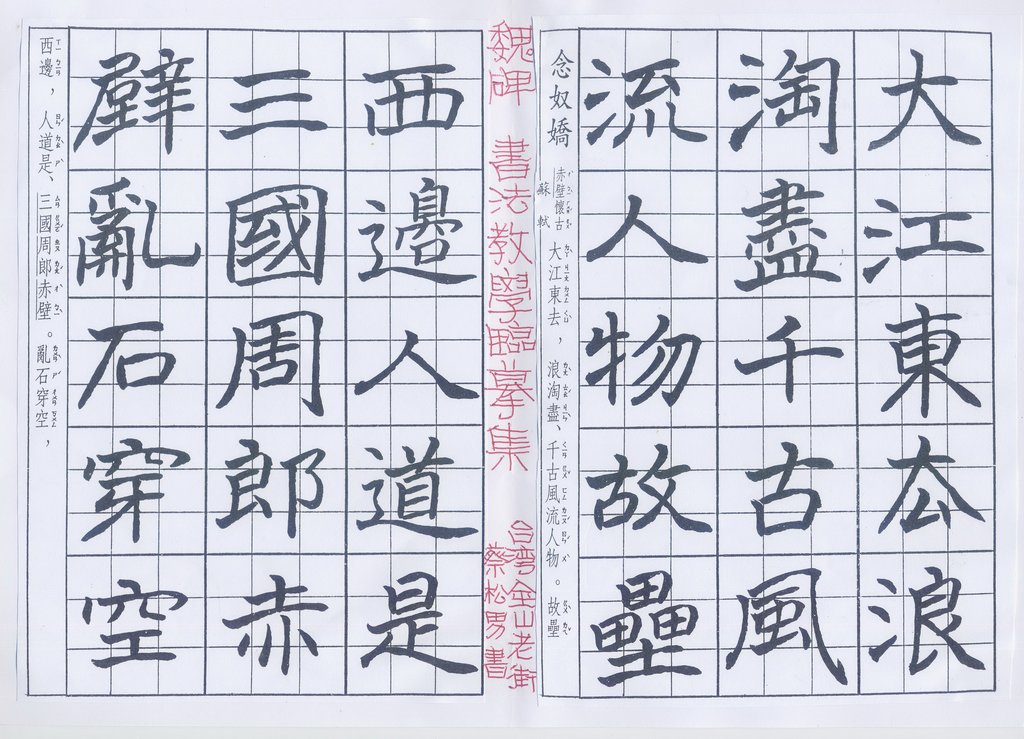 大江東厺浪
淘盡千古風
流人物故壘
念奴嬌 赤壁懷古 蘇軾 大江東去，浪淘盡、千古風流人物。故壘
魏碑 書法教學臨摹集
台灣金山老街
蔡松男書
西邊人道是
三國周郎赤
壁亂石穿空
西邊，人道是、三國周郎赤壁。亂石穿空，